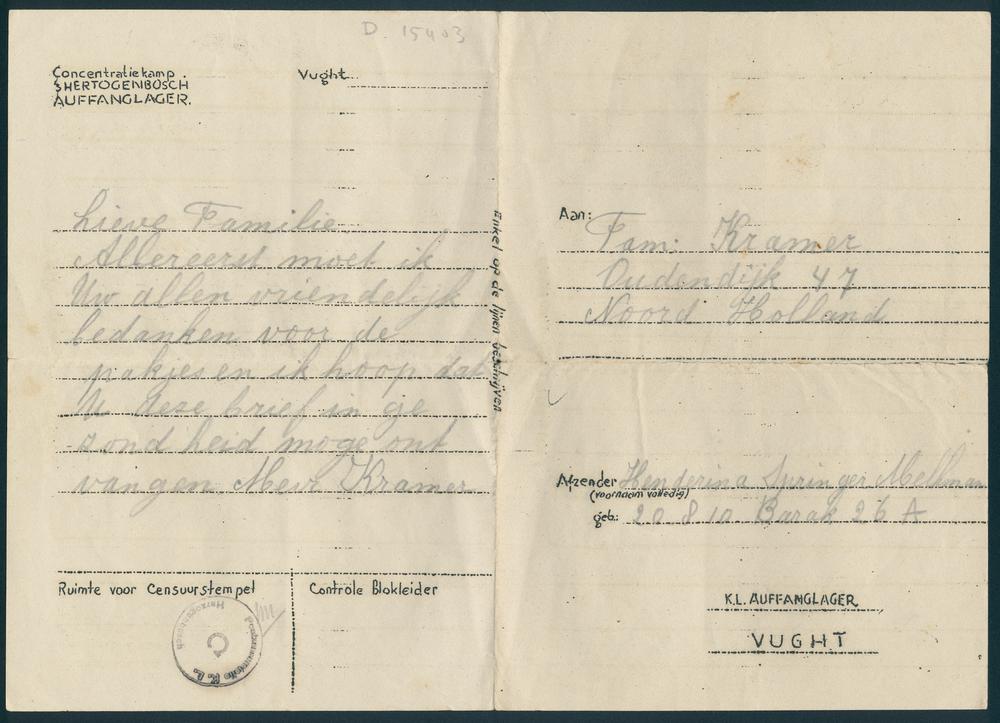 D. 15403
Concentratiekamp.
SHERTOGENBOSCH
AUFFANGLAGER.
Vught
Lieve Familie
Allereerst moet ik
Uw allen vriendelijk
bedanken voor de
pakjes en ik hoop dat
U deze brief in ge
zond heid moge ont
vangen Kramer
Enkel op de lijnen beschrijven
Ruimte voor Censuurstempel
Controle Blokleider
Postzensurstelle K. L.
Herzogenbusch
Aan: Fam: Kramer
Oudendijk 47
Noord Holland
Afzender Henderina Springer Mellman
(voornaam volledig)
geb: 20 8 10 Barak 26 A
K.L. AUFFANGLAGER
VUGHT